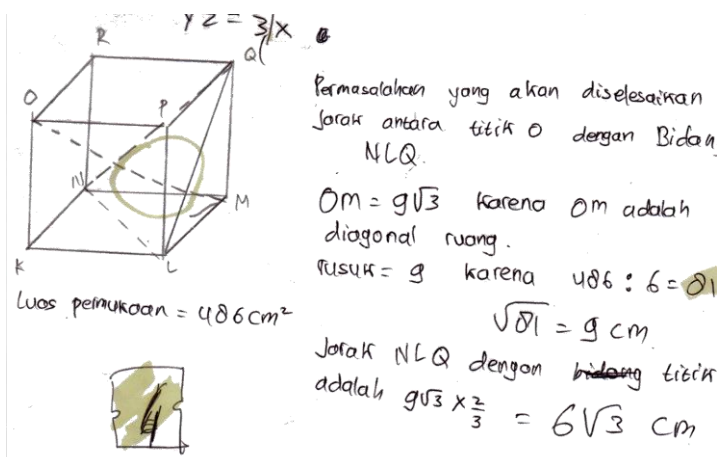 YZ = 3/X
R
Q
O
P
N
M
K
L
Luas permukaan = 486 cm²
Permasalahan yang akan diselesaikan
Jarak antara titik O dengan Bidan
NLQ.
OM = 9√3 karena OM adalah
diagonal ruang.
rusuk = 9 karena 486 : 6 = 81
√81 = 9 cm
Jarak NLQ dengan titik
adalah 9√3 × 2/3 = 6√3 cm